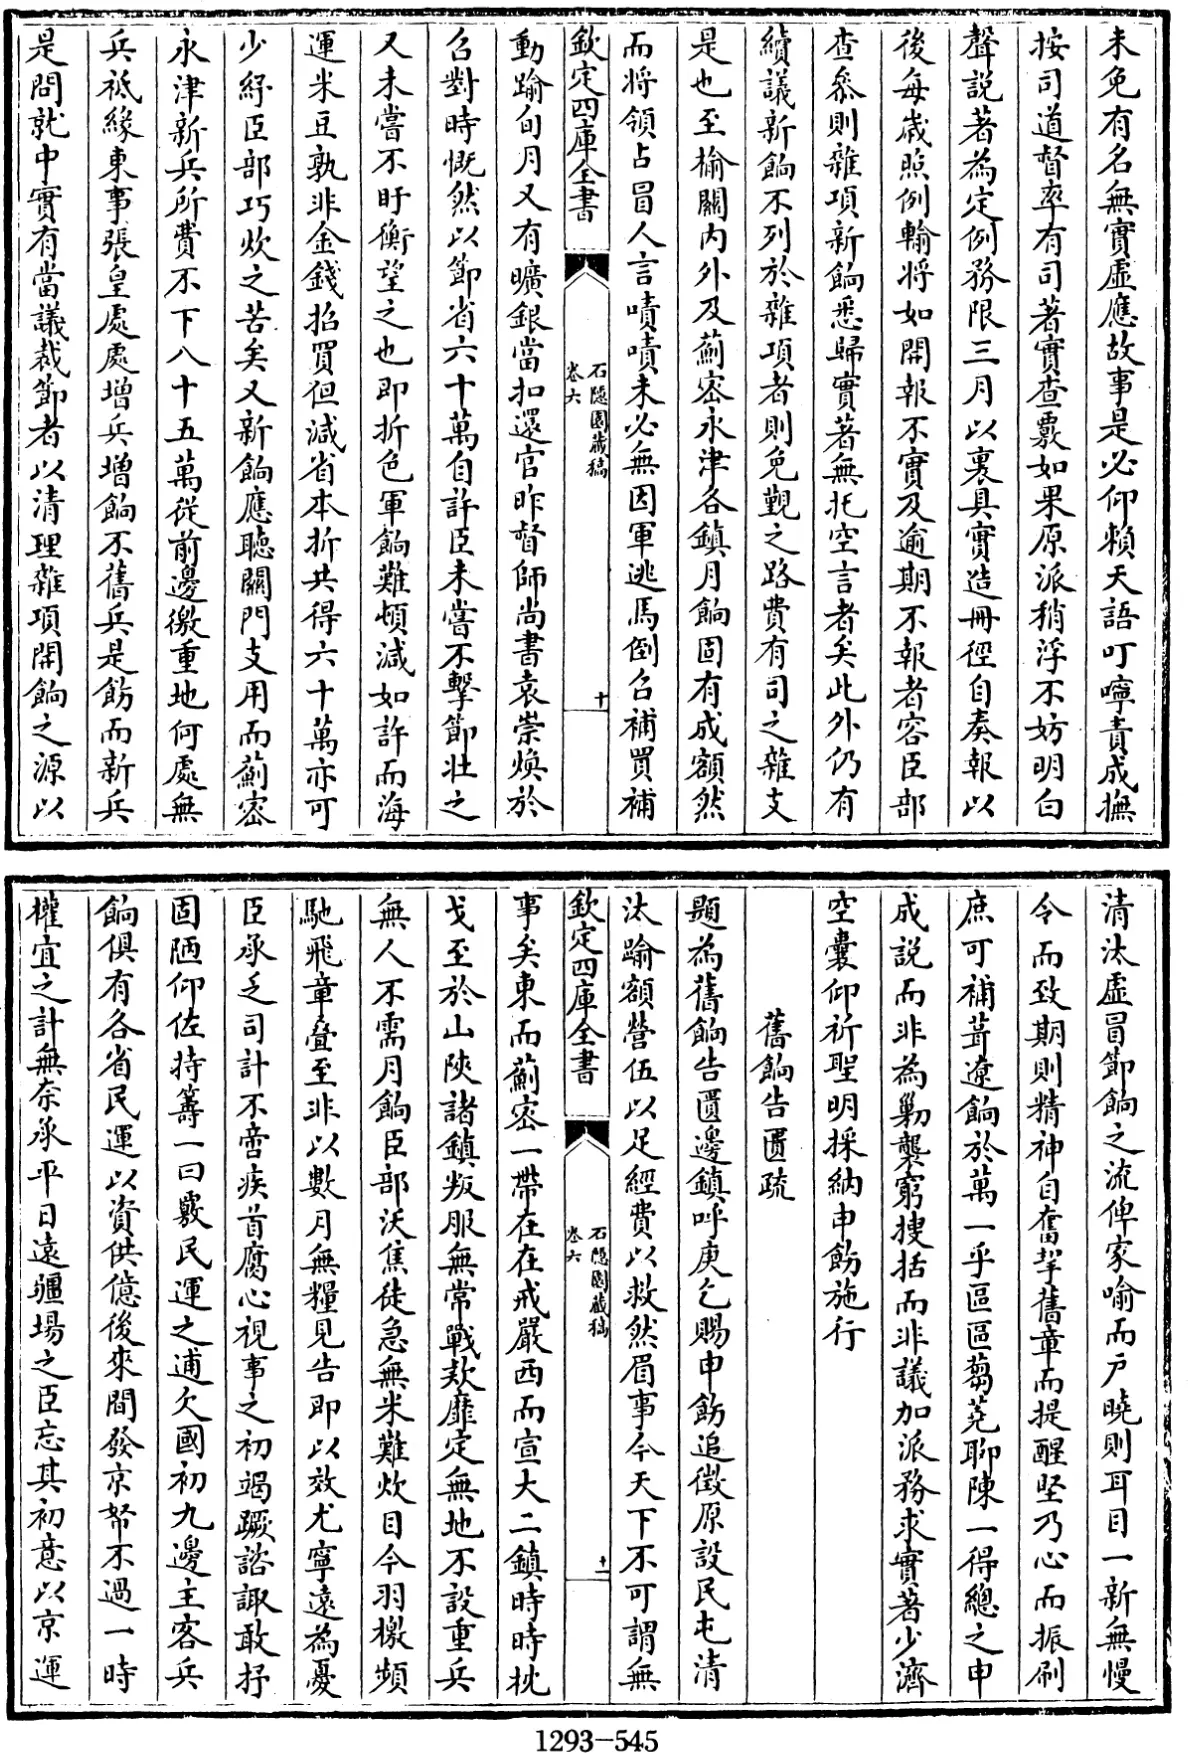 未免有名無實虛應故事是必仰賴天語叮嚀責成撫
按司道督率有司著實查覈如果原派稍浮不妨明白
聲說著為定例務限三月以裏具實造冊徑自奏報以
後每歲照例輸將如開報不實及逾期不報者容臣部
查參則雜項新餉悉歸實著無托空言者矣此外仍有
續議新餉不列於雜項者則免覲之路費有司之雜支
是也至榆關內外及薊密永津各鎮月餉固有成額然
而將領占冒人言嘖嘖未必無因軍逃馬倒召補買補
欽定四庫全書
石隱園藏稿
卷六
十
動踰旬月又有曠銀當扣還官昨督師尚書袁崇煥於
召對時慨然以節省六十萬自許臣未嘗不擊節壯之
又未嘗不盱衡望之也即折色軍餉難頓減如許而海
運米豆孰非金錢招買但減省本折共得六十萬亦可
少紓臣部巧炊之苦矣又新餉應聽關門支用而薊密
永津新兵所費不下八十五萬從前邊徼重地何處無
兵祗緣東事張皇處處增兵增餉不舊兵是飭而新兵
是問就中實有當議裁節者以清理雜項開餉之源以
清汰虛冒節餉之流俾家喻而戶曉則耳目一新無慢
令而致期則精神自奮挈舊章而提醒堅乃心而振刷
庶可補葺遼餉於萬一乎區區芻蕘聊陳一得總之申
成說而非為勦襲窮搜括而非議加派務求實著少濟
空囊仰祈聖明採納申飭施行
舊餉告匱疏
題為舊餉告匱邊鎮呼庚乞賜申飭追徵原設民屯清
汰踰額營伍以足經費以救然眉事今天下不可謂無
欽定四庫全書
石隱園藏稿
卷六
十一
事矣東而薊密一帶在在戒嚴西而宣大二鎮時時枕
戈至於山陝諸鎮叛服無常戰款靡定無地不設重兵
無人不需月餉臣部沃焦徒急無米難炊目今羽檄頻
馳飛章疊至非以數月無糧見告即以效尤寧遠為憂
臣承乏司計不啻疾首腐心視事之初竭蹶諮諏敢抒
固陋仰佐持籌一曰覈民運之逋欠國初九邊主客兵
餉俱有各省民運以資供億後來間發京帑不過一時
權宜之計無奈承平日遠疆場之臣忘其初意以京運
1293-545